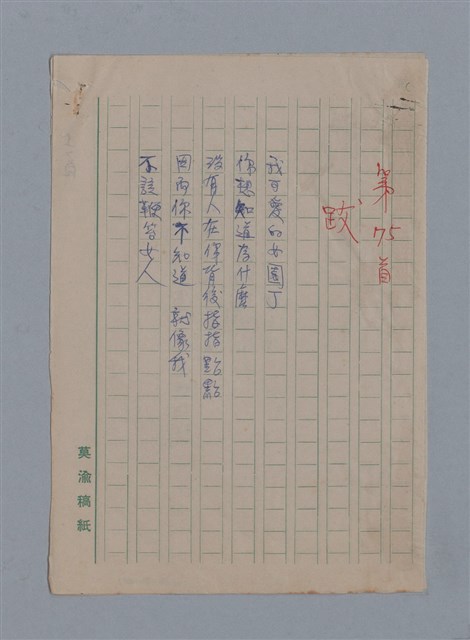 第75首
跋
我可愛的女園丁
你想知道為什麼
沒有人在你背後指指點點
因而你不知道 就像我
不該鞭笞女人
莫渝稿紙